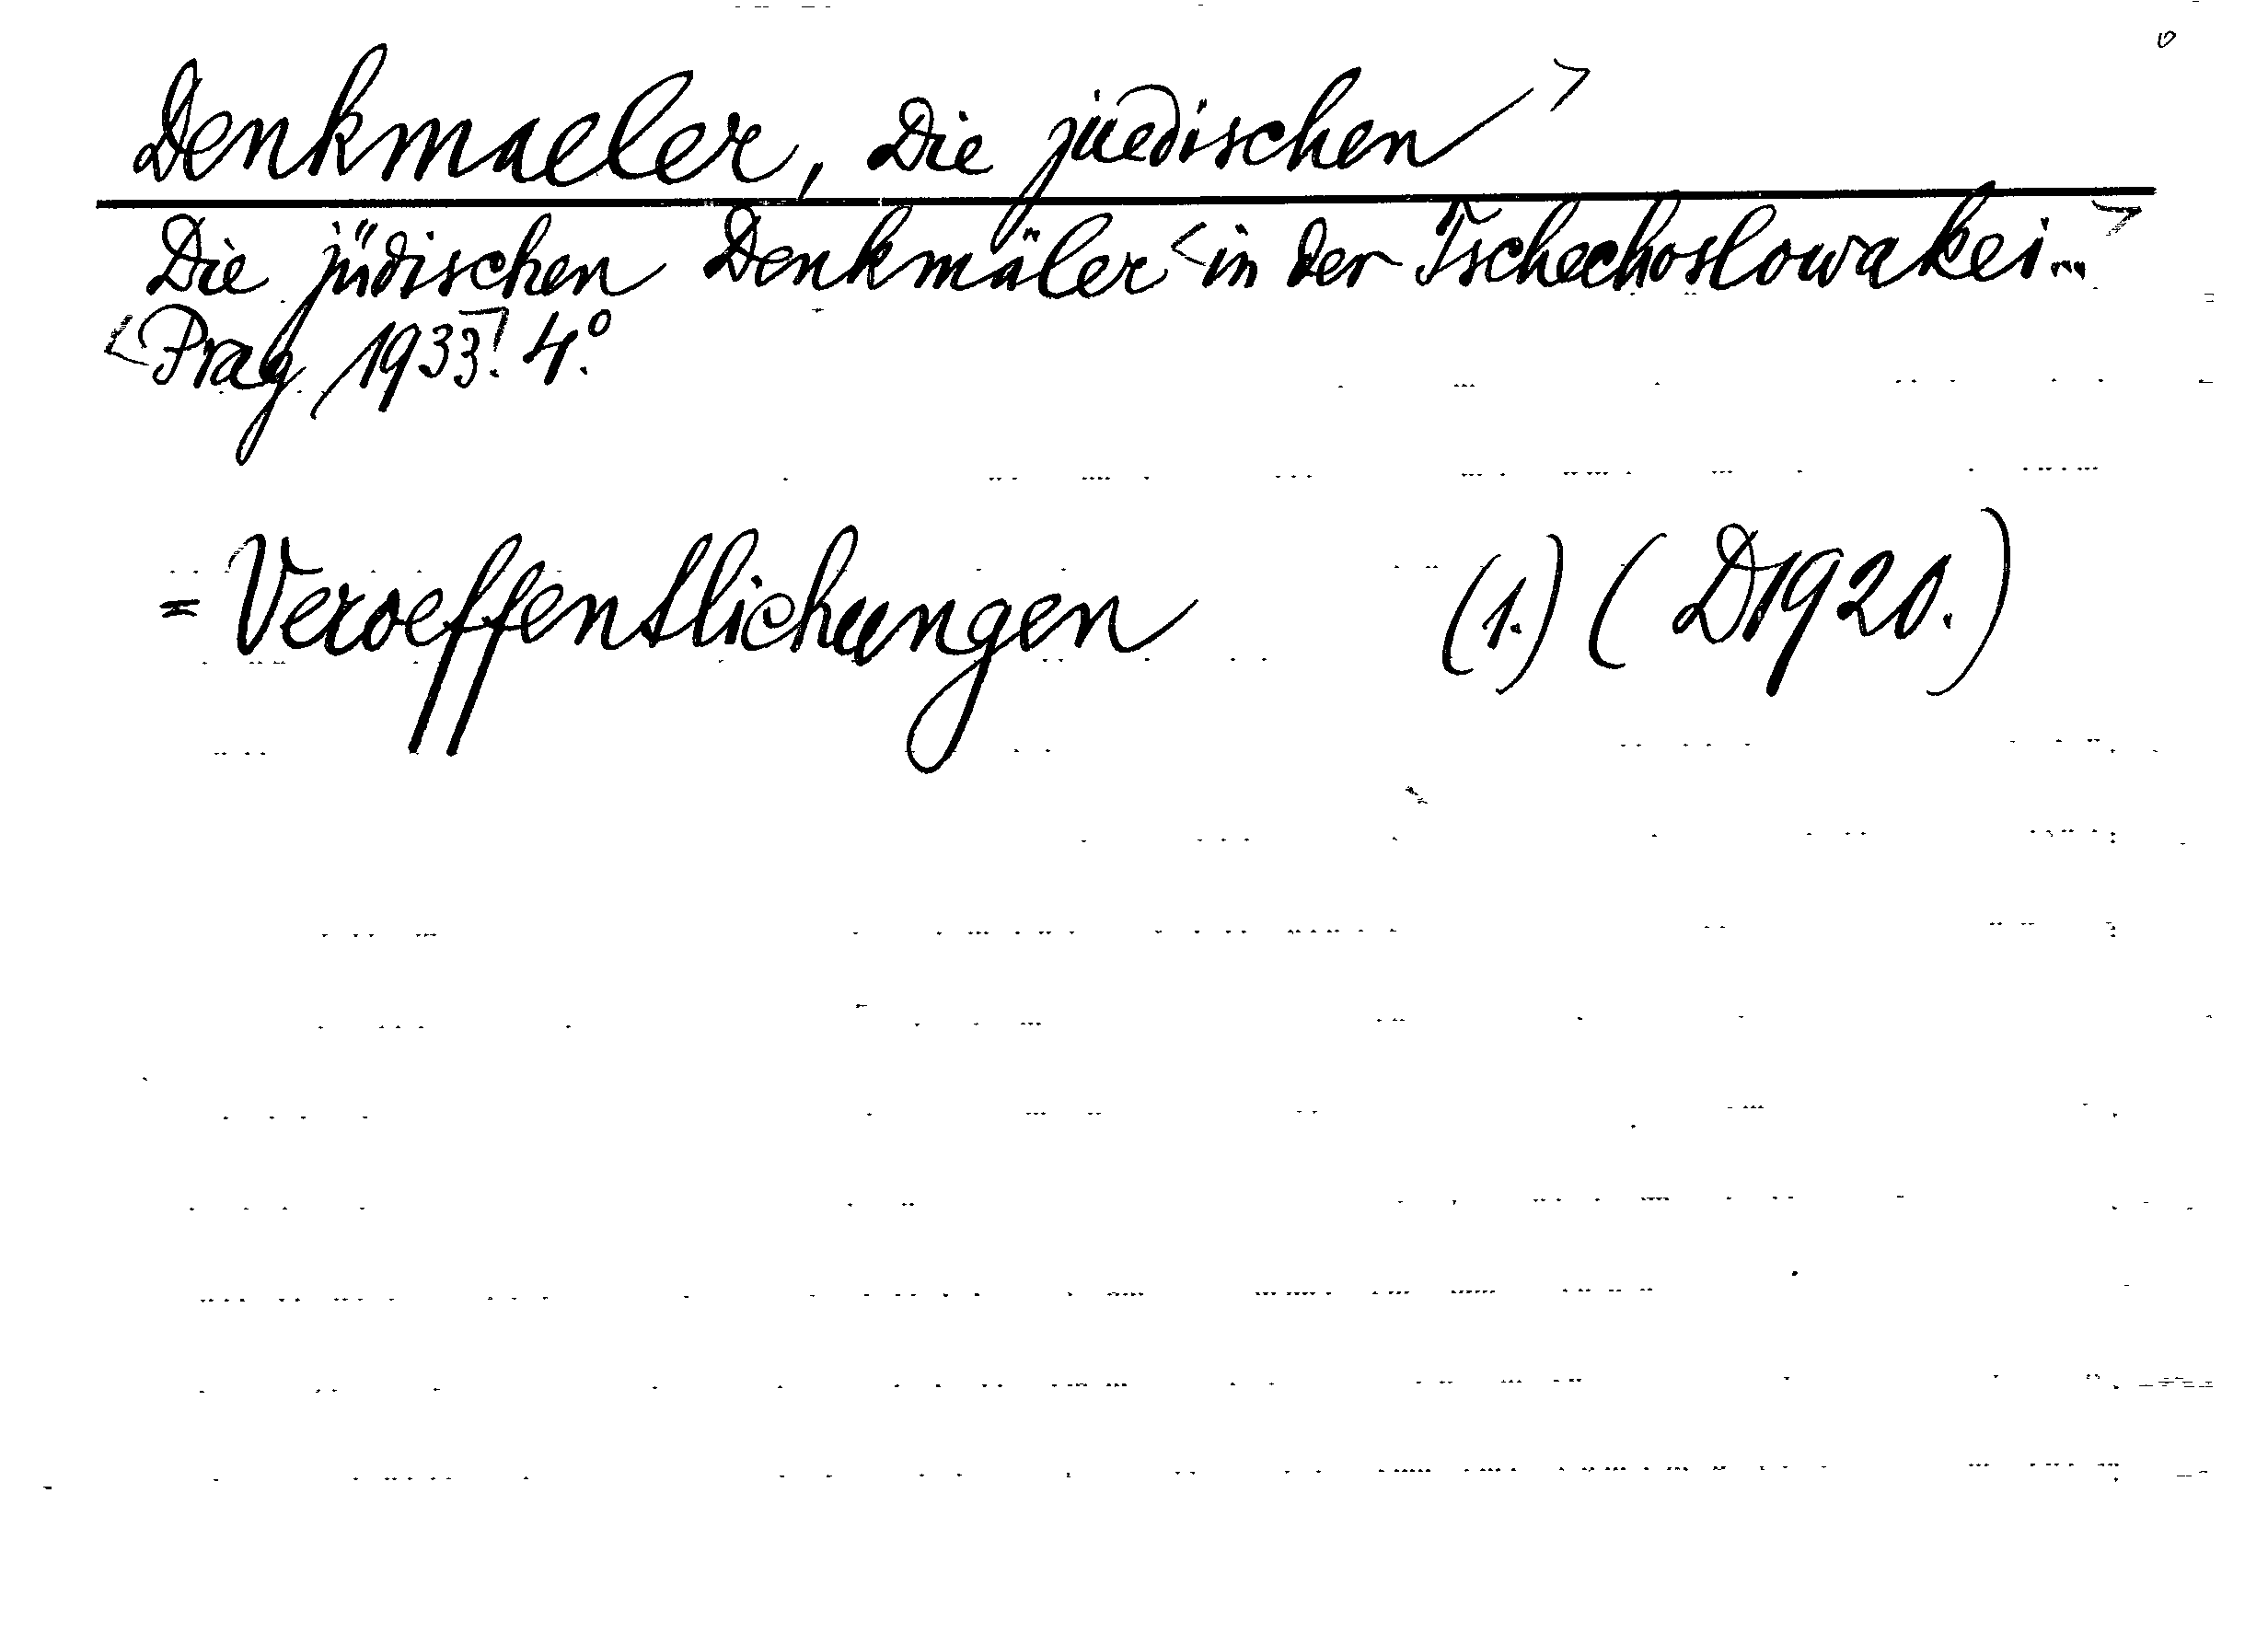 Denkmaeler, Die juedischen >
Die jüdischen Denkmäler < in der Tschechoslowakei... >
< Prag, 1933 >! 4.°
= Veroeffentlichungen (1.) (D1920.)